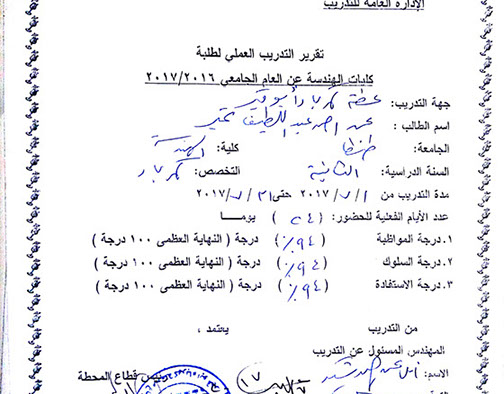 الإدارة العامة للتدريب
تقرير التدريب العملي لطلبة
كليات الهندسة عن العام الجامعي ٢٠١٧/٢٠١٦
جهة التدريب: محطة كهرباء أبوقير
اسم الطالب: عبد اللطيف
الجامعة: طنطا كلية: الهندسة
السنة الدراسية: الثانية التخصص: كهرباء
مدة التدريب من ٢٠١٧/٧/١ حتى ٢٠١٧/٧/٣١
عدد الأيام الفعلية للحضور: (٢٤) يومـا
١.درجة المواظبة (٩٤٪) درجة ( النهاية العظمى ١٠٠ درجة )
٢.درجة السلوك (٩٤٪) درجة ( النهاية العظمى ١٠٠ درجة )
٣.درجة الاستفادة (٩٤٪) درجة ( النهاية العظمى ١٠٠ درجة )
من التدريب يعتمد ،
المهندس المسئول عن التدريب
رئيس قطاع المحطة
الاسم: